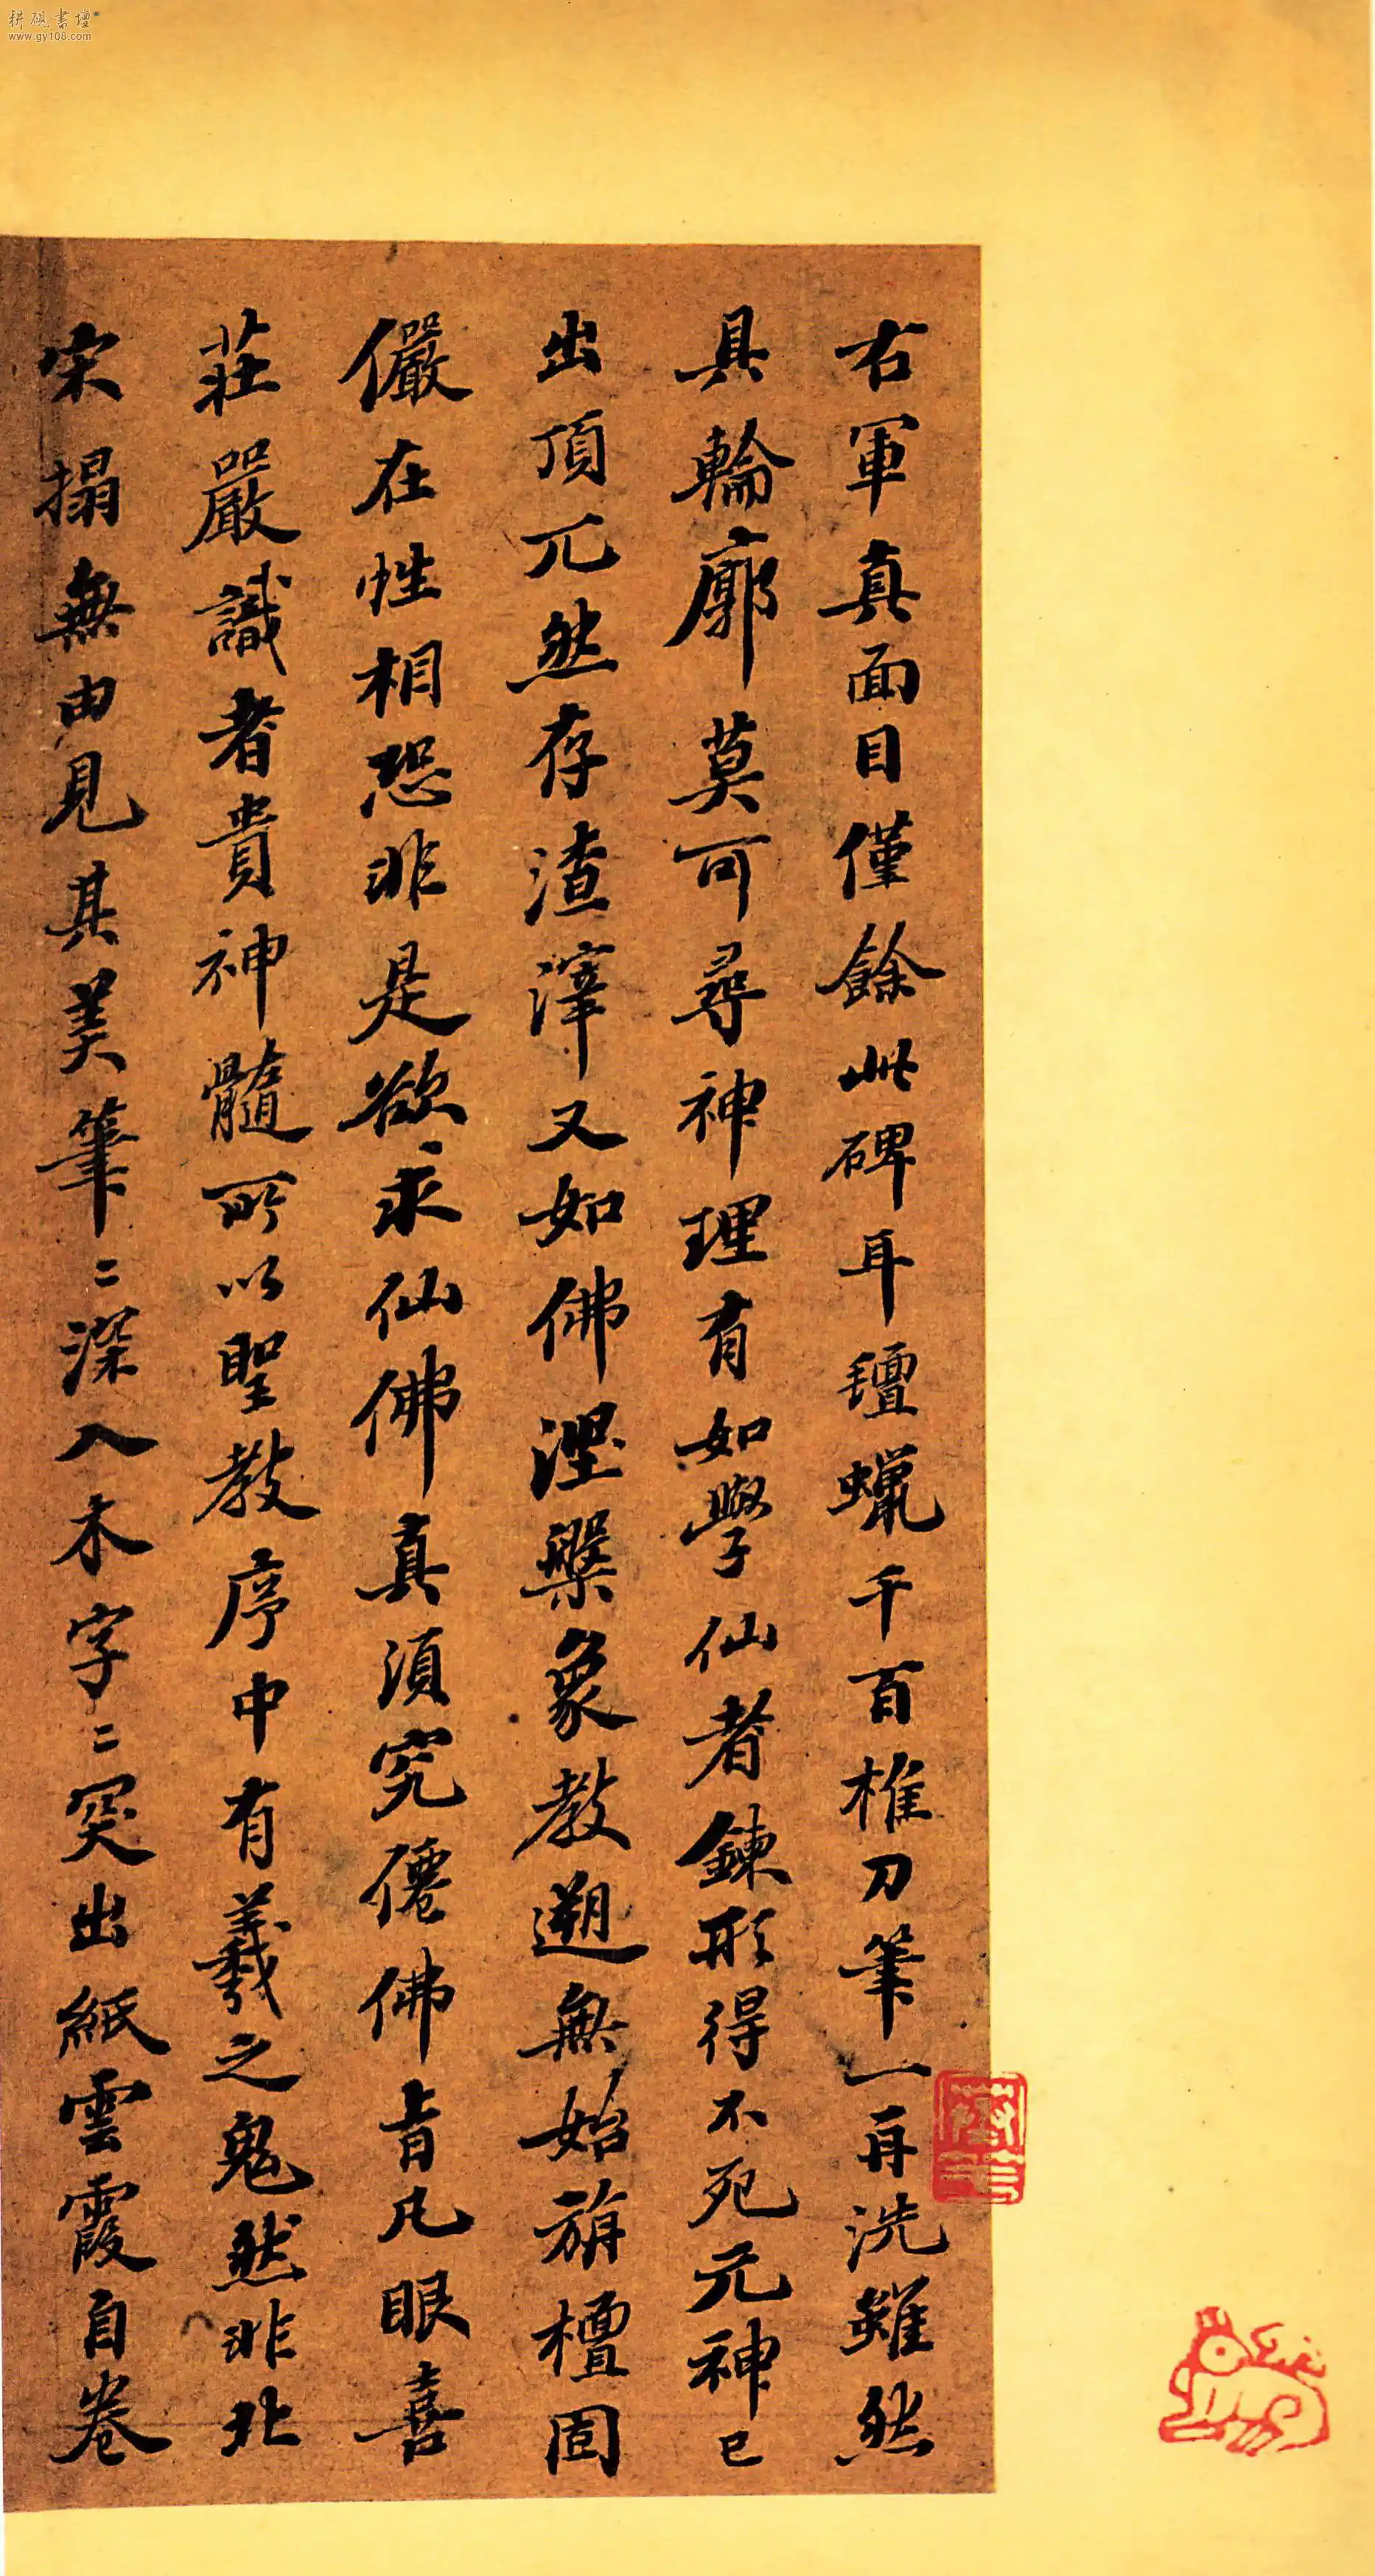 耕硯書壇
www.gy108.com
右軍真面目僅餘此碑耳氊蠟千百椎刀筆一再洗雖然
具輪廓莫可尋神理有如學仙者鍊形得不死元神已
出頂兀然存渣滓又如佛涅槃象教遡無始旃檀固
儼在性相恐非是欲求仙佛真須究僊佛旨凡眼喜
莊嚴識者貴神髓所以聖教序中有羲之鬼然非北
宋搨無由見其美筆〻深入木字〻突出紙雲霞自卷